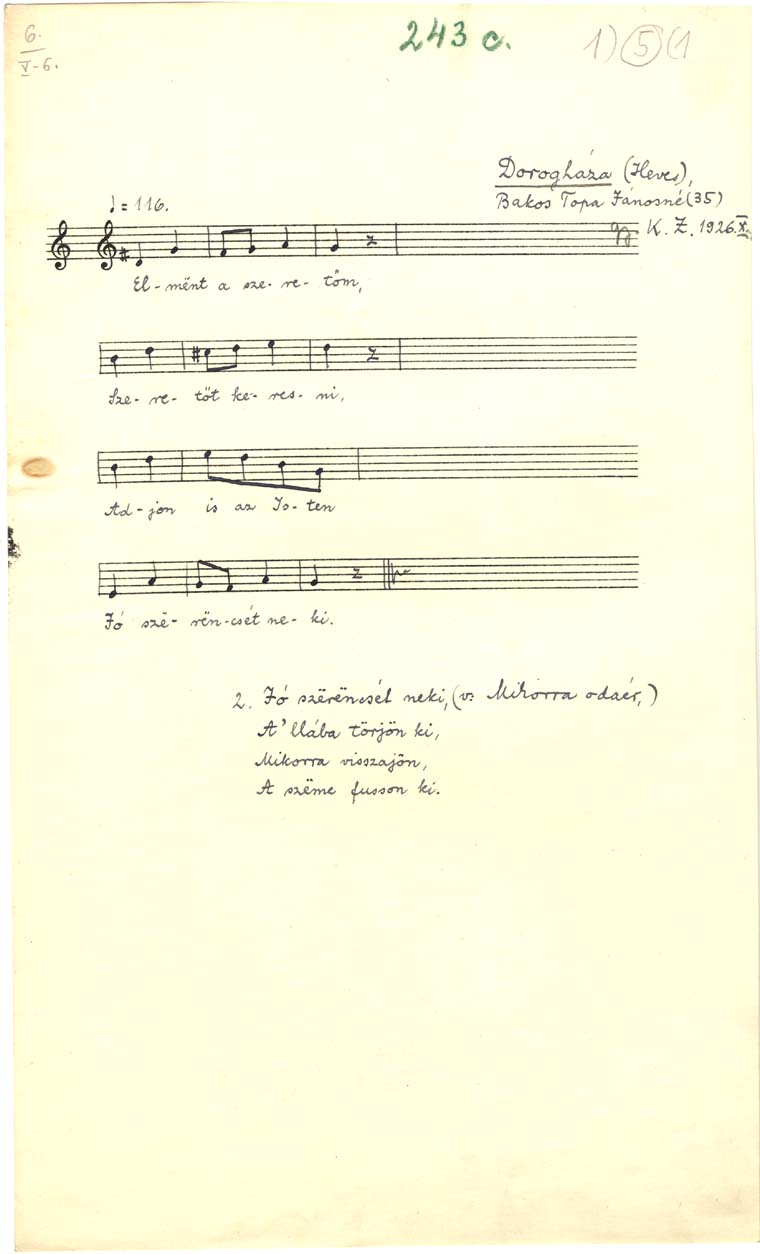 6.
V-6.
243 c.
1) 5 (1
Dorogháza (Heves),
Bakos Topa Jánosné (35)
gy. K. Z. 1926. X.
♩ = 116.
El-mënt a sze-re-tőm,
Sze-re-tőt ke-res-ni,
Ad-jon is az Is-ten
Jó szë-rën-csét ne-ki.
2. Jó szërëncsét neki, (v: Mikorra odaér,)
A' llába törjön ki,
Mikorra visszajön,
A szëme fusson ki.